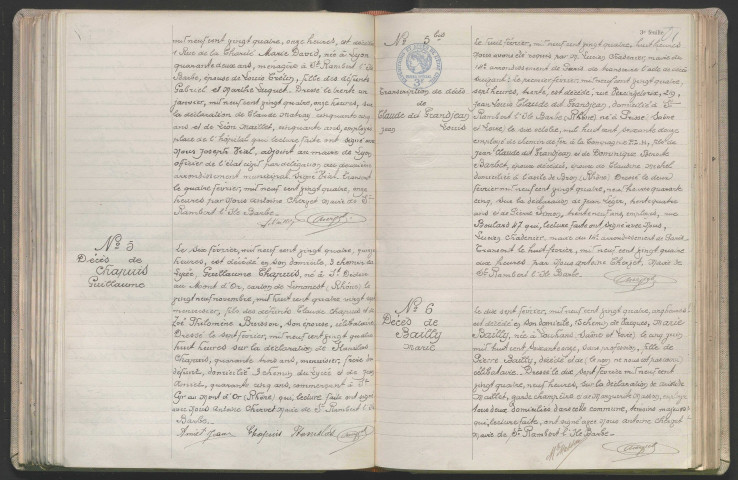 mil neuf cent vingt quatre, onze heures, est décédée
Rue de la Charité Marie David, née à Lyon
quarante deux ans, ménagère à St Rambert l'Ile
Barbe, épouse de Louis Trelin, fille des défunts
Gabriel et Marthe Dressé le trente un
janvier, mil neuf cent vingt quatre, onze heures, sur
la déclaration de Claude cinquante cinq
ans et de Léon Maillet, cinquante ans, employés
place de l'hôpital qui lecture faite ont signé avec
Nous Joseph Vial, adjoint au maire de Lyon
officier de l'état civil par délégation du deuxième
arrondissement municipal signé Vial. Transcrit
le quatre février, mil neuf cent vingt quatre, onze
heures par Nous Antoine Chervet Maire de St
Rambert l'Ile Barbe.
No 5
Décès de
Chapuis
Guillaume
Le six février, mil neuf cent vingt quatre, quinze
heures, est décédé en son domicile, 3 chemin du
Lycée, Guillaume Chapuis, né à St Didier
au Mont d'Or, canton de Limonest (Rhône) le
vingt neuf novembre, mil huit cent quatre vingt
menuisier, fils des défunts Claude Chapuis et de
Philomène Brisson, son épouse, célibataire
Dressé le sept février, mil neuf cent vingt quatre
huit heures sur la déclaration de Stanislas
Chapuis, quarante trois ans, menuisier, frère du
défunt, domicilié 3 chemin du Lycée et de Jean
quarante cinq ans, commerçant à St
Cyr au Mont d'Or (Rhône) qui, lecture faite ont signé
avec Nous Antoine Chervet Maire de St Rambert l'Ile
Barbe.
Chapuis Stanislas
No 5 bis
Transcription de décès
de
Claude dit Grandjean
Jean
Louis
3e Feuille
Le huit février, mil neuf cent vingt quatre, huit heures
Nous avons reçu de M. Lucien Chadenier, maire du
14e arrondissement de Paris de transcrire l'acte de décès
suivant: le premier février, mil neuf cent vingt quatre,
sept heures, trente, est décédé, rue 29,
Jean Louis Claude dit Grandjean, domicilié à St
Rambert l'Ile Barbe (Rhône) né à (Saône
et Loire) le dix octobre, mil huit cent soixante douze
employé de chemin de fer à la Compagnie P.L.M., fils de
Jean Claude dit Grandjean et de Dominique
époux décédés, époux de Claudine Michel
domiciliée à l'asile de Bron (Rhône) Dressé le deux
février mil neuf cent vingt quatre, neuf heures quarante
cinq, sur la déclaration de Jean Léger, trente quatre
ans et de Pierre Simon, trente neuf ans, employés, rue
Boulard 47 qui, lecture faite, ont signé avec Nous,
Lucien Chadenier, maire du 14e arrondissement de Paris
Transcrit le huit février, mil neuf cent vingt quatre
dix heures par Nous Antoine Chervet, Maire de
St Rambert l'Ile Barbe.
No 6
Décès de
Bailly
Marie
Le dix sept février, mil neuf cent vingt quatre,
est décédée en son domicile, chemin de Marie
Bailly, née à Louhans (Saône et Loire) le cinq juin
mil huit cent sans profession, fille de
Pierre Bailly, décédé et de (le nom ne nous est pas connu)
célibataire. Dressé le dix sept février mil neuf cent
vingt quatre, neuf heures, sur la déclaration de
Maillet, garde champêtre et de
tous deux domiciliés dans cette commune, témoins majeurs
qui, lecture faite, ont signé avec Nous Antoine Chervet
Maire de St Rambert l'Ile Barbe.